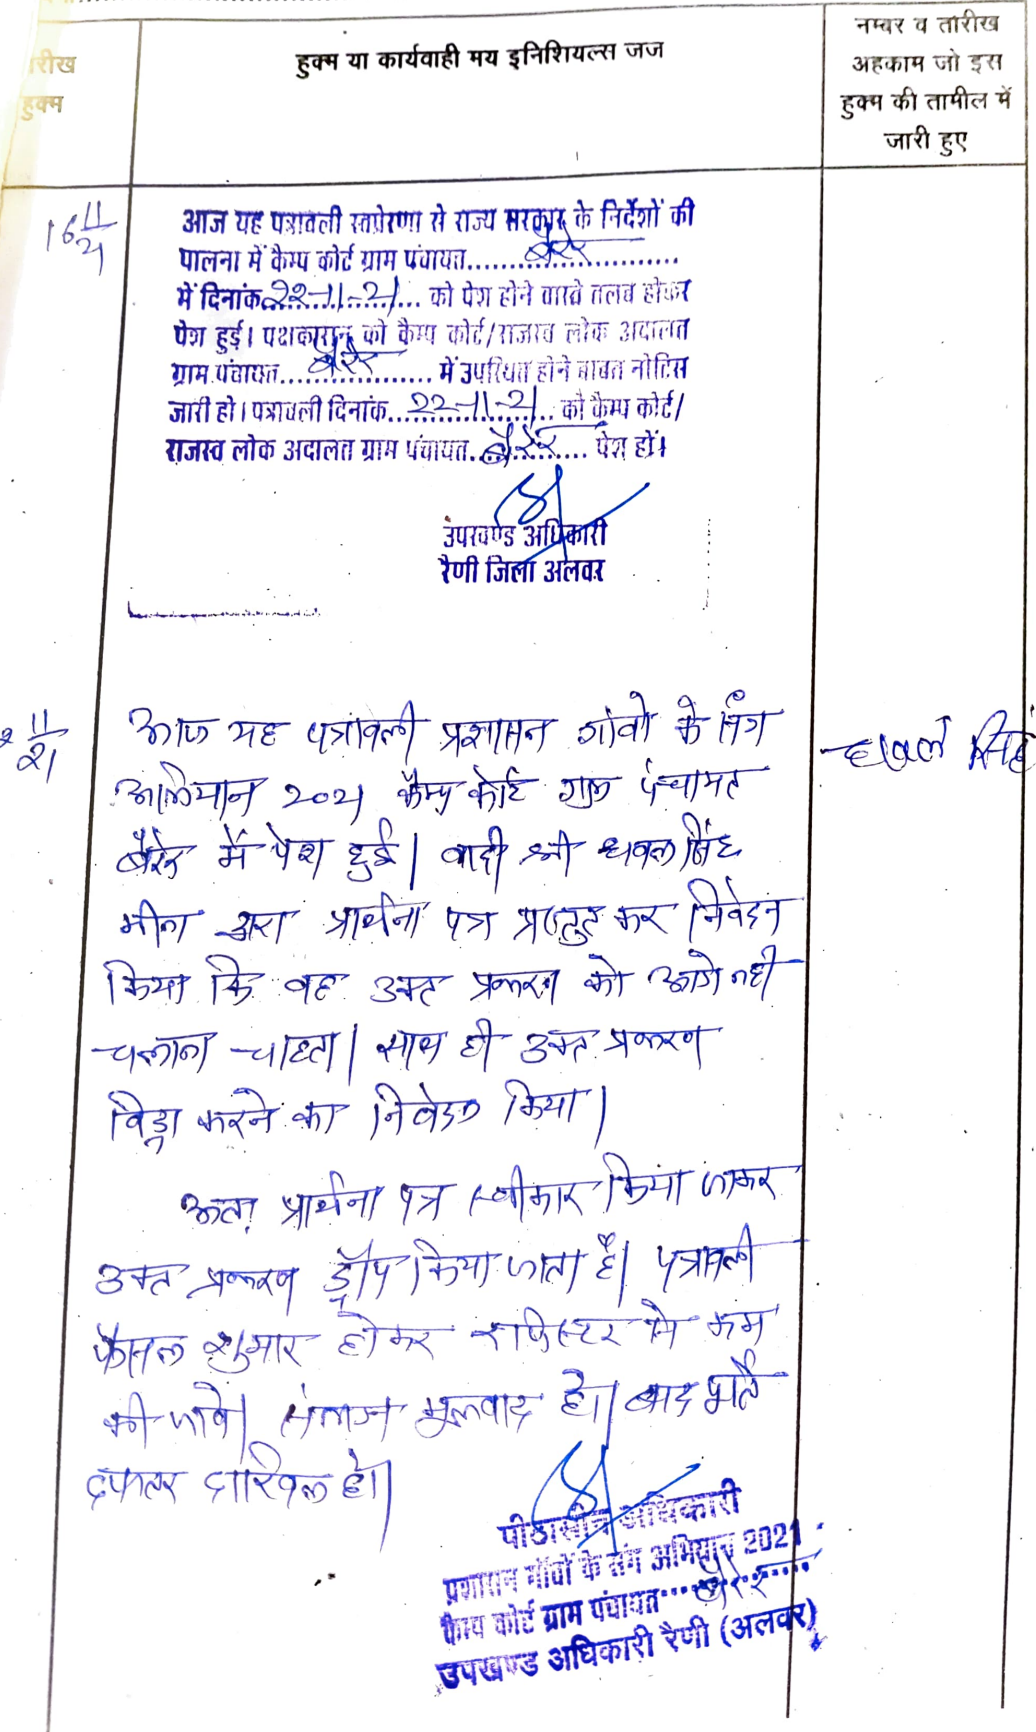 तारीख
हुक्म
हुक्म या कार्यवाही मय इनिशियल्स जज
नम्बर व तारीख
अहकाम जो इस
हुक्म की तामील में
जारी हुए
16 11/21
आज यह पत्रावली स्वप्रेरणा से राज्य सरकार के निर्देशों की
पालना में कैम्प कोर्ट ग्राम पंचायत....बैरेर....
में दिनांक 22-11-21 को पेश होने वास्ते तलब होकर
पेश हुई। पक्षकारान को कैम्प कोर्ट/राजस्व लोक अदालत
ग्राम पंचायत....बैरेर.... में उपस्थित होने बाबत नोटिस
जारी हो। पत्रावली दिनांक...22-11-21... को कैम्प कोर्ट/
राजस्व लोक अदालत ग्राम पंचायत..बैरेर.... पेश हो।
उपखण्ड अधिकारी
रैणी जिला अलवर
2 11/21
आज यह पत्रावली प्रशासन गांवो के संग
अभियान 2021 कैम्प कोर्ट ग्राम पंचायत
बैरेर में पेश हुई। वादी श्री धवल सिंह
मीना द्वारा प्रार्थना पत्र प्रस्तुत कर निवेदन
किया कि वह उक्त प्रकरण को आगे नही
चलाना चाहता। साथ ही उक्त प्रकरण
विड्रा करने का निवेदन किया।
अतः प्रार्थना पत्र स्वीकार किया जाकर
उक्त प्रकरण ड्रॉप किया जाता है। पत्रावली
फैसल शुमार होकर रजिस्टर से कम
की जावे। संलग्न मूलवाद हो। बाद पूर्ति
दफ्तर दाखिल हो।
धवल सिंह
पीठासीन अधिकारी
प्रशासन गाँवों के संग अभियान 2021
कैम्प कोर्ट ग्राम पंचायत....बैरेर....
उपखण्ड अधिकारी रैणी (अलवर)